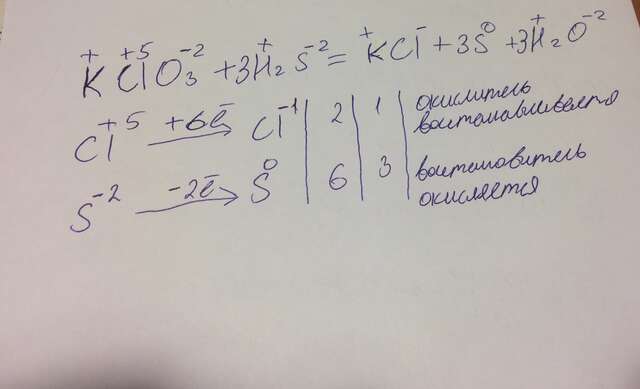 K⁺Cl⁺⁵O₃⁻² + 3H₂⁺S⁻² = K⁺Cl⁻ + 3S⁰ + 3H₂⁺O⁻²
Cl⁺⁵ +6ē → Cl⁻¹ | 2 | 1 | окислитель
восстанавливается
S⁻² -2ē → S⁰ | 6 | 3 | восстановитель
окисляется